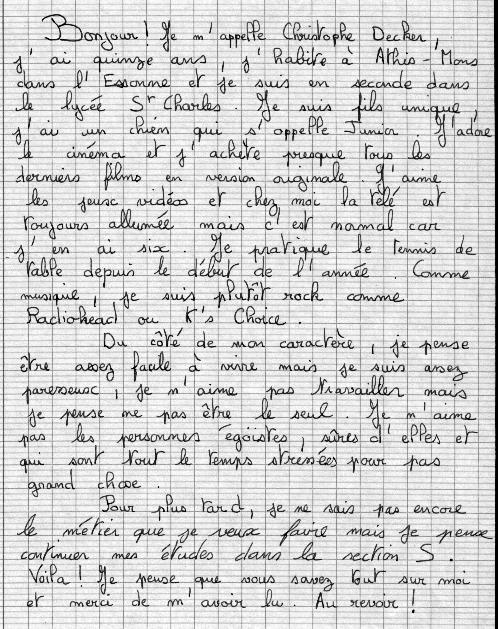 Bonjour ! Je m'appelle Christophe Decker,
j'ai quinze ans, j'habite à Athis-Mons
dans l'Essonne et je suis en seconde dans
le lycée St Charles. Je suis fils unique,
j'ai un chien qui s'appelle Junior. J'adore
le cinéma et j'achète presque tous les
derniers films en version originale. J'aime
les jeux vidéos et chez moi la télé est
toujours allumée mais c'est normal car
j'en ai six. Je pratique le tennis de
table depuis le début de l'année. Comme
musique, je suis plutôt rock comme
Radiohead ou K's Choice.
Du côté de mon caractère, je pense
être assez facile à vivre mais je suis assez
paresseux, je n'aime pas travailler mais
je pense ne pas être le seul. Je n'aime
pas les personnes égoïstes, sûres d'elles et
qui sont tout le temps stressées pour pas
grand chose.
Pour plus tard, je ne sais pas encore
le métier que je veux faire mais je pense
continuer mes études dans la section S.
Voila ! Je pense que vous savez tout sur moi
et merci de m'avoir lu. Au revoir !